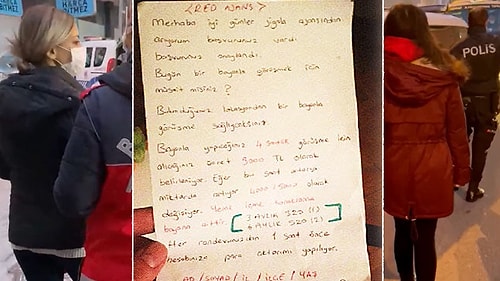 HARCA
BİTMEZ
<RED NANS>
Merhaba iyi günler jigolo ajansından
arıyorum başvurunuz vardı
başvurunuz onaylandı.
Bugün bir bayanla görüşmek için
müsait misiniz ?
Bulunduğunuz lokasyondan bir bayanla
görüşme sağlayacaksınız
Bayanla yapacağınız 4 saatlik görüşme için
alacağınız ücret 3000 TL olarak
belirleniyor. Eğer bu saat artarsa
miktarda artıyor 4000 / 5000 olarak
değişiyor. Yeme içme konaklama
bayana aittir.
3 AYLIK 320 (1)
6 AYLIK 520 (2)
Her randevunuzdan 1 saat önce
hesabınıza para aktarımı yapılıyor.
AD / SOYAD / İL / İLÇE / YAŞ
POLİS